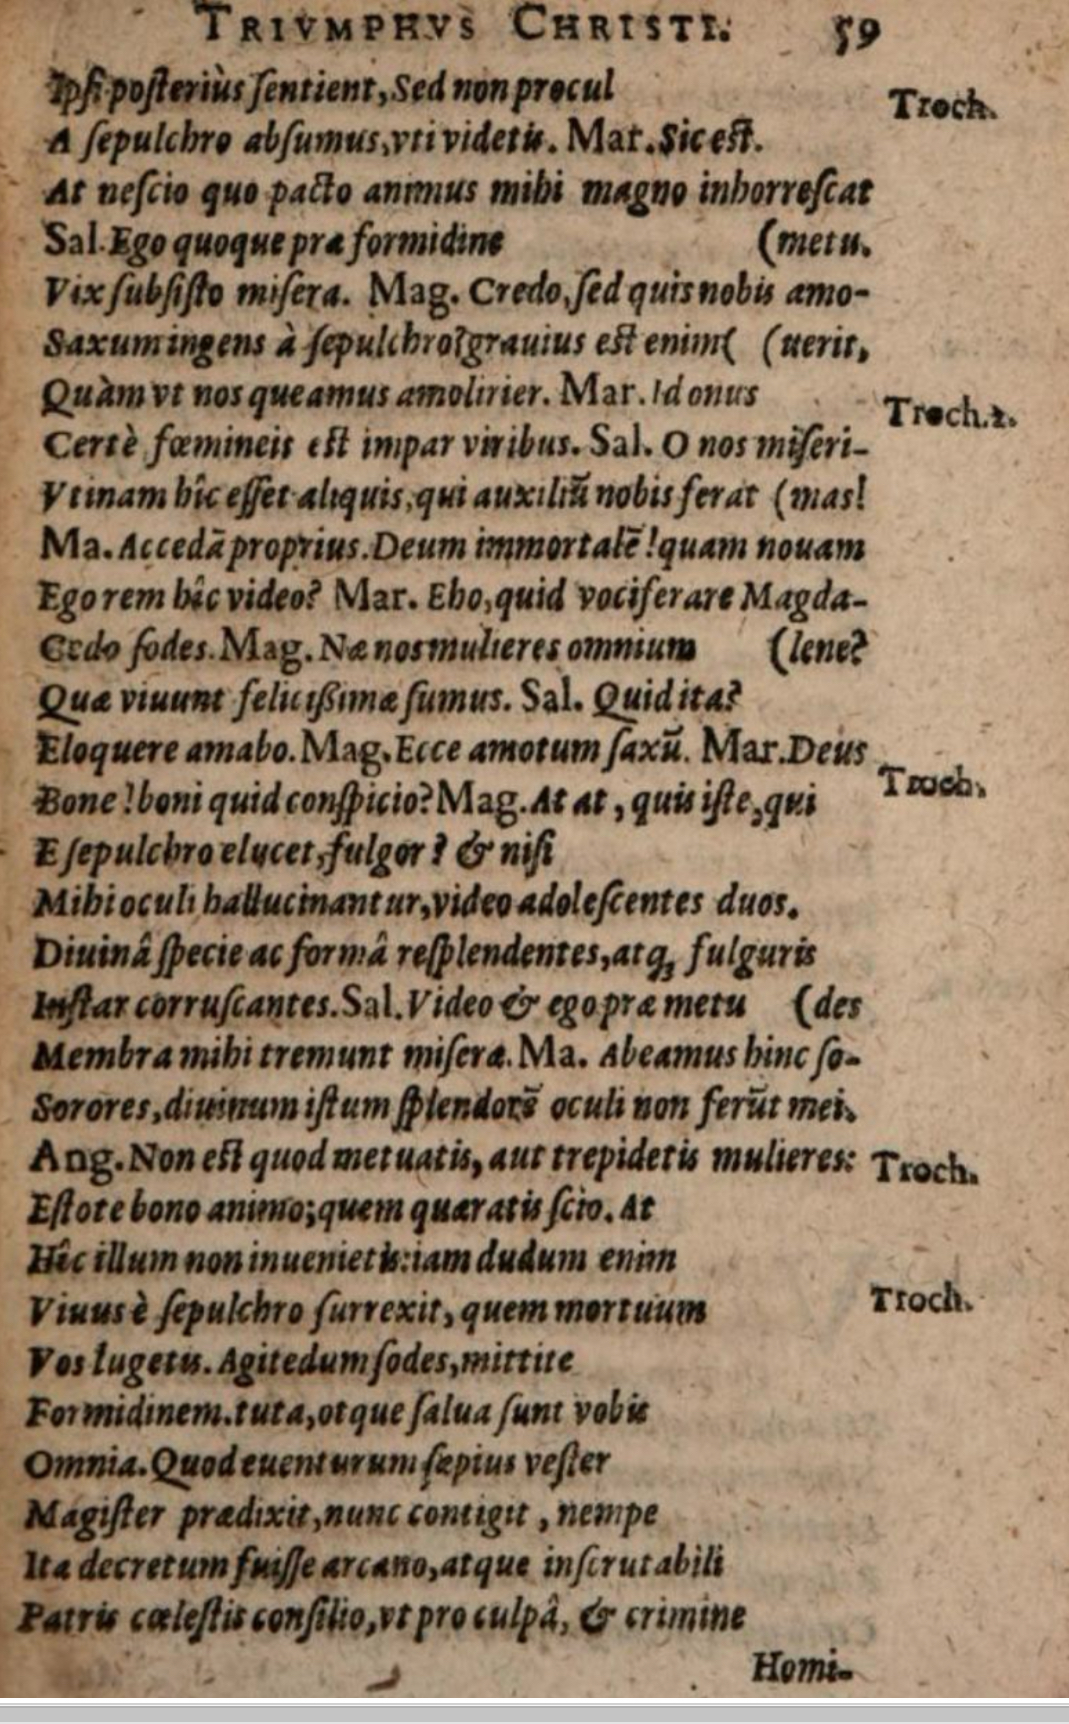 TRIVMPHVS CHRISTI. 59
Ipſi poſteriùs ſentient, Sed non procul
Troch.
A ſepulchro abſumus, vti videtis. Mar. Sic eſt.
At neſcio quo pacto animus mihi magno inhorreſcat
Sal. Ego quoque præ formidine (metu.
Vix ſubſiſto miſera. Mag. Credo, ſed quis nobis amo-
Saxum ingens à ſepulchro? grauius eſt enim( (uerit,
Quàm vt nos queamus amolirier. Mar. Id onus
Troch. 2.
Certè fœmineis eſt impar viribus. Sal. O nos miſeri-
Vtinam hîc eſſet aliquis, qui auxiliũ nobis ferat (mas!
Ma. Accedã proprius. Deum immortalẽ! quam nouam
Ego rem hîc video? Mar. Eho, quid vociferare Magda-
Cedo ſodes. Mag. Næ nos mulieres omnium (lene?
Quæ viuunt feliciſſimæ ſumus. Sal. Quid ita?
Eloquere amabo. Mag. Ecce amotum ſaxũ. Mar. Deus
Troch.
Bone! boni quid conſpicio? Mag. At at, quis iſte, qui
E ſepulchro elucet, fulgor? & niſi
Mihi oculi hallucinantur, video adoleſcentes duos.
Diuinâ ſpecie ac formâ reſplendentes, atq; fulguris
Inſtar corruſcantes. Sal. Video & ego præ metu (des
Membra mihi tremunt miſeræ. Ma. Abeamus hinc ſo-
Sorores, diuinum iſtum ſplendorẽ oculi non ferũt mei.
Ang. Non eſt quod metuatis, aut trepidetis mulieres:
Troch.
Eſtote bono animo; quem quæratis ſcio. At
Hîc illum non inuenietis: iam dudum enim
Viuus è ſepulchro ſurrexit, quem mortuum
Troch.
Vos lugetis. Agitedum ſodes, mittite
Formidinem. tuta, otque ſalua ſunt vobis
Omnia. Quod euenturum ſæpius veſter
Magiſter prædixit, nunc contigit, nempe
Ita decretum fuiſſe arcano, atque inſcrutabili
Patris cæleſtis conſilio, vt pro culpâ, & crimine
Homi-